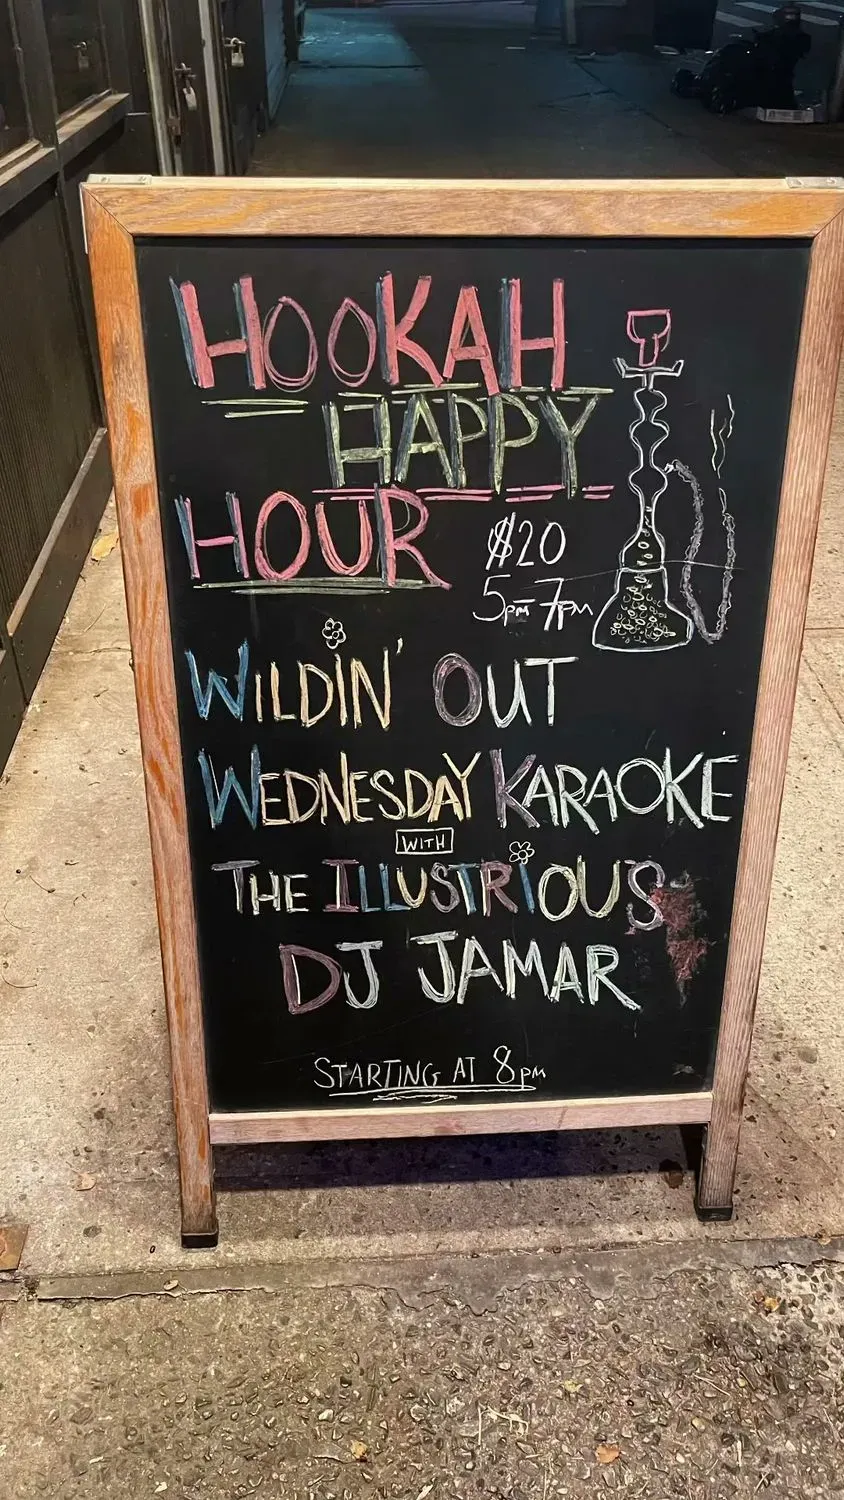 HOOKAH
HAPPY
HOUR
$20
5pm-7pm
WILDIN' OUT
WEDNESDAY KARAOKE
WITH
THE ILLUSTRIOUS
DJ JAMAR
STARTING AT 8pm